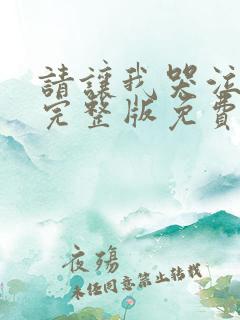 請讓我哭泣
完整版免費
夜殤
未任同意禁止轉載